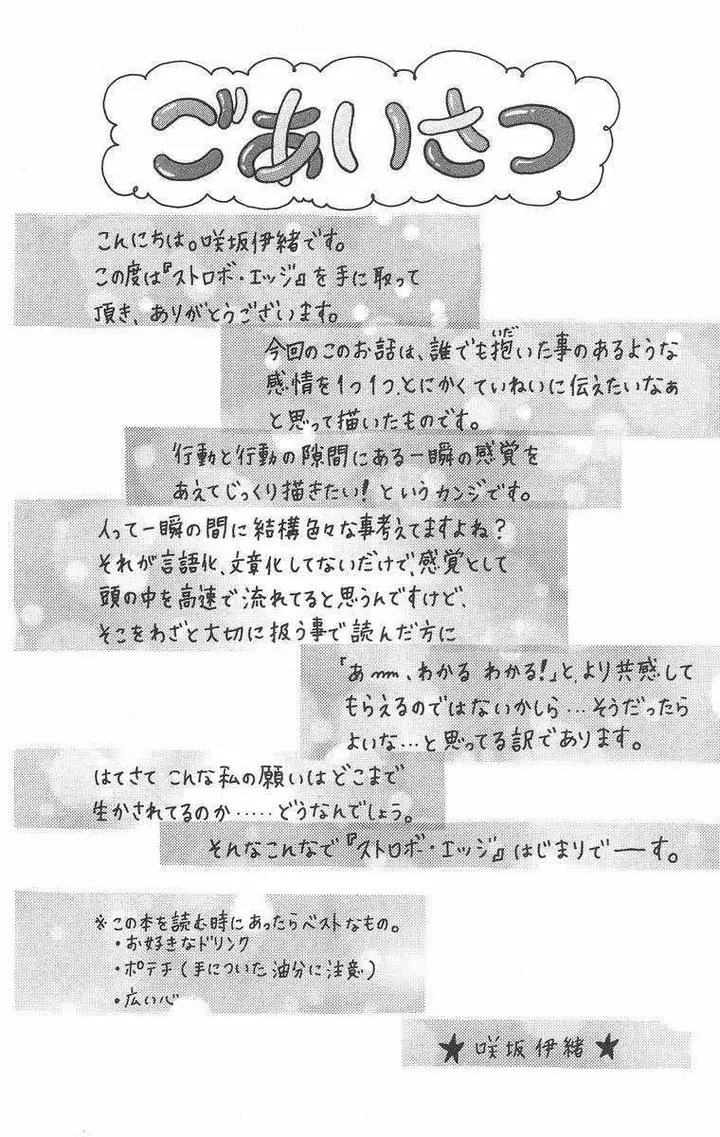 ごあいさつ
こんにちは。咲坂伊緒です。
この度は『ストロボ・エッジ』を手に取って
頂き、ありがとうございます。
今回のこのお話は、誰でも抱いた事のあるような
感情を1つ1つ、とにかくていねいに伝えたいなぁ
と思って描いたものです。
行動と行動の隙間にある一瞬の感覚を
あえてじっくり描きたい!というカンジです。
人って一瞬の間に結構色々な事考えてますよね?
それが言語化、文章化してないだけで、感覚として
頭の中を高速で流れてると思うんですけど、
そこをわざと大切に扱う事で読んだ方に
「あ〜〜、わかる わかる!」と、より共感して
もらえるのではないかしら…そうだったら
よいな…と思ってる訳であります。
はてさて こんな私の願いはどこまで
生かされてるのか……どうなんでしょう。
そんなこんなで『ストロボ・エッジ』はじまりでーす。
※この本を読む時にあったらベストなもの。
・お好きなドリンク
・ポテチ(手についた油分に注意)
・広い心
★咲坂伊緒★